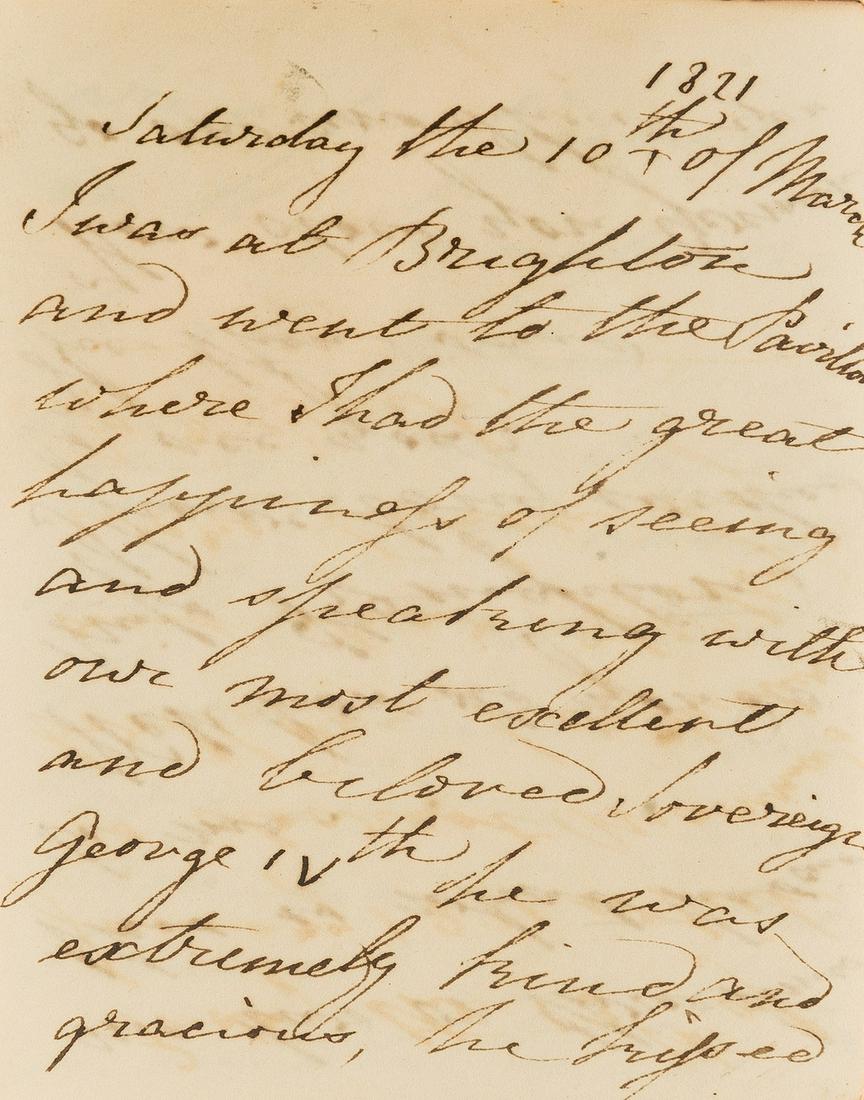 1821
Saturday the 10th of March
I was at Brighton
and went to the Pavilion
where I had the great
happiness of seeing
and speaking with
our most excellent
and beloved Sovereign
George IVth he was
extremely kind and
gracious, he kissed